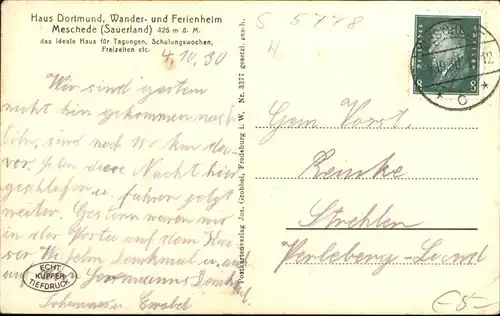 Haus Dortmund, Wander- und Ferienheim
Meschede (Sauerland) 425 m ü. M.
das ideale Haus für Tagungen, Schulungswochen,
Freizeiten etc.
4.10.30
Wir sind gestern
nicht hin gekommen nach
sind noch 150 km da-
vor. diese Nacht hier
geschlafen u. fahren jetzt
weiter. Gestern waren wir
in der Porta auf dem Kai-
ser Wilhelm Denkmal u. am
Hermanns Denkmal
Johannes u.
ECHT
KUPFER
TIEFDRUCK
Postkartenverlag Jos. Grobbel, Fredeburg i. W. Nr. 3377 gesetzl. gesch.
S 5778
H
DEUTSCHES REICH
8 8
12
* C *
Gem. Vorst.
Reinke
Strehlen
Perleberg-Land
-5-